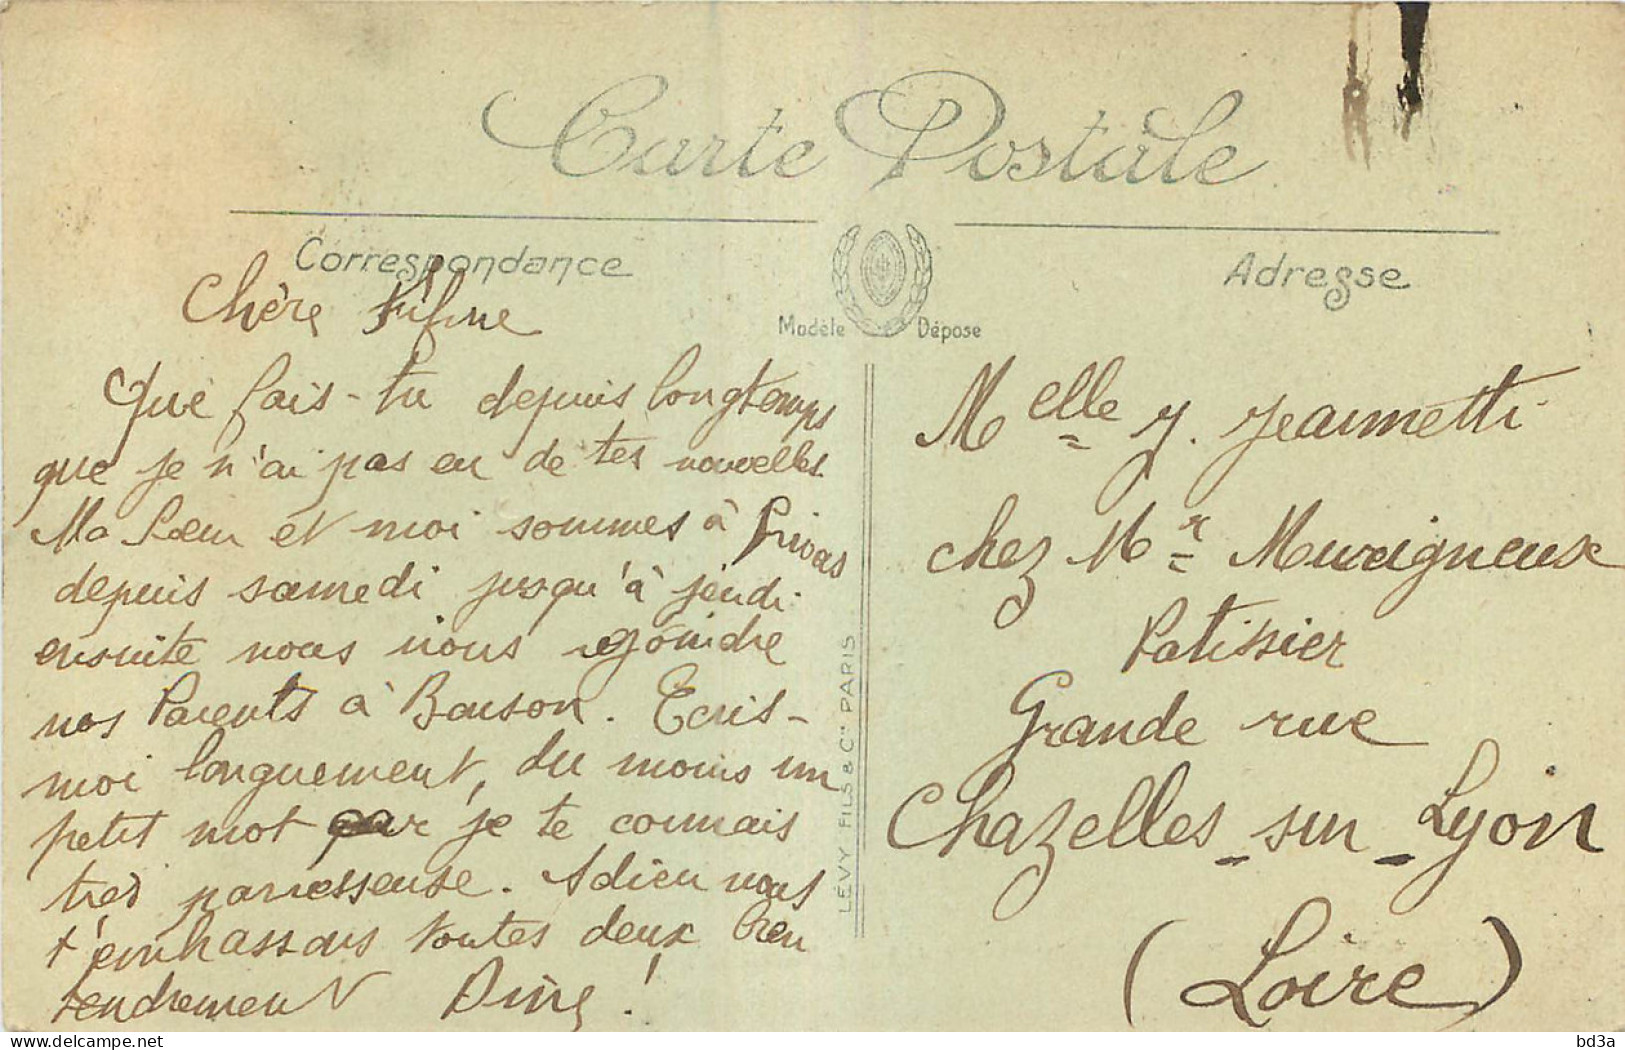 Carte Postale
Correspondance
Adresse
Modèle Déposé
Chère Fifine
Que fais-tu depuis longtemps
que je n'ai pas eu de tes nouvelles
Ma Sœur et moi sommes à Privas
depuis samedi jusqu'à jeudi
ensuite nous nous rejoindre
nos Parents à Bauson. Ecris-
moi longuement, du moins un
petit mot car je te connais
très parresseuse. Adieu nous
t'embrassons toutes deux bien
tendrement Dine!
LÉVY FILS & Cie PARIS
Melle J. Jeannetti
chez Mr
Patissier
Grande rue
Chazelles-sur-Lyon
(Loire)
bd3a